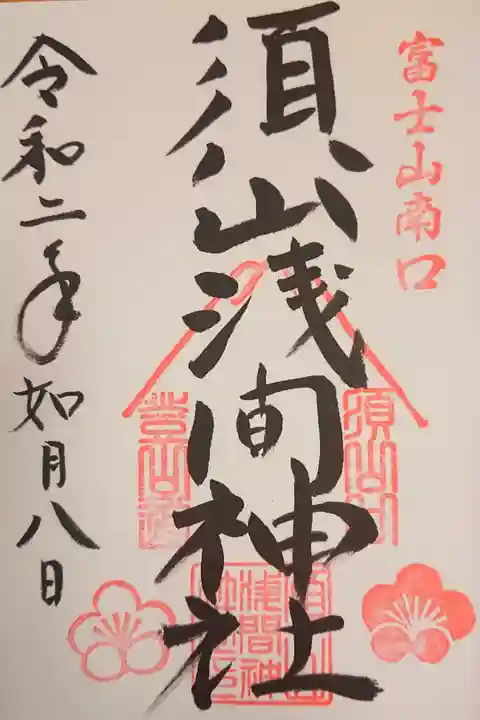 富士山南口
須山浅間神社
令和二年如月八日
須山口
登山道
須山浅間神社